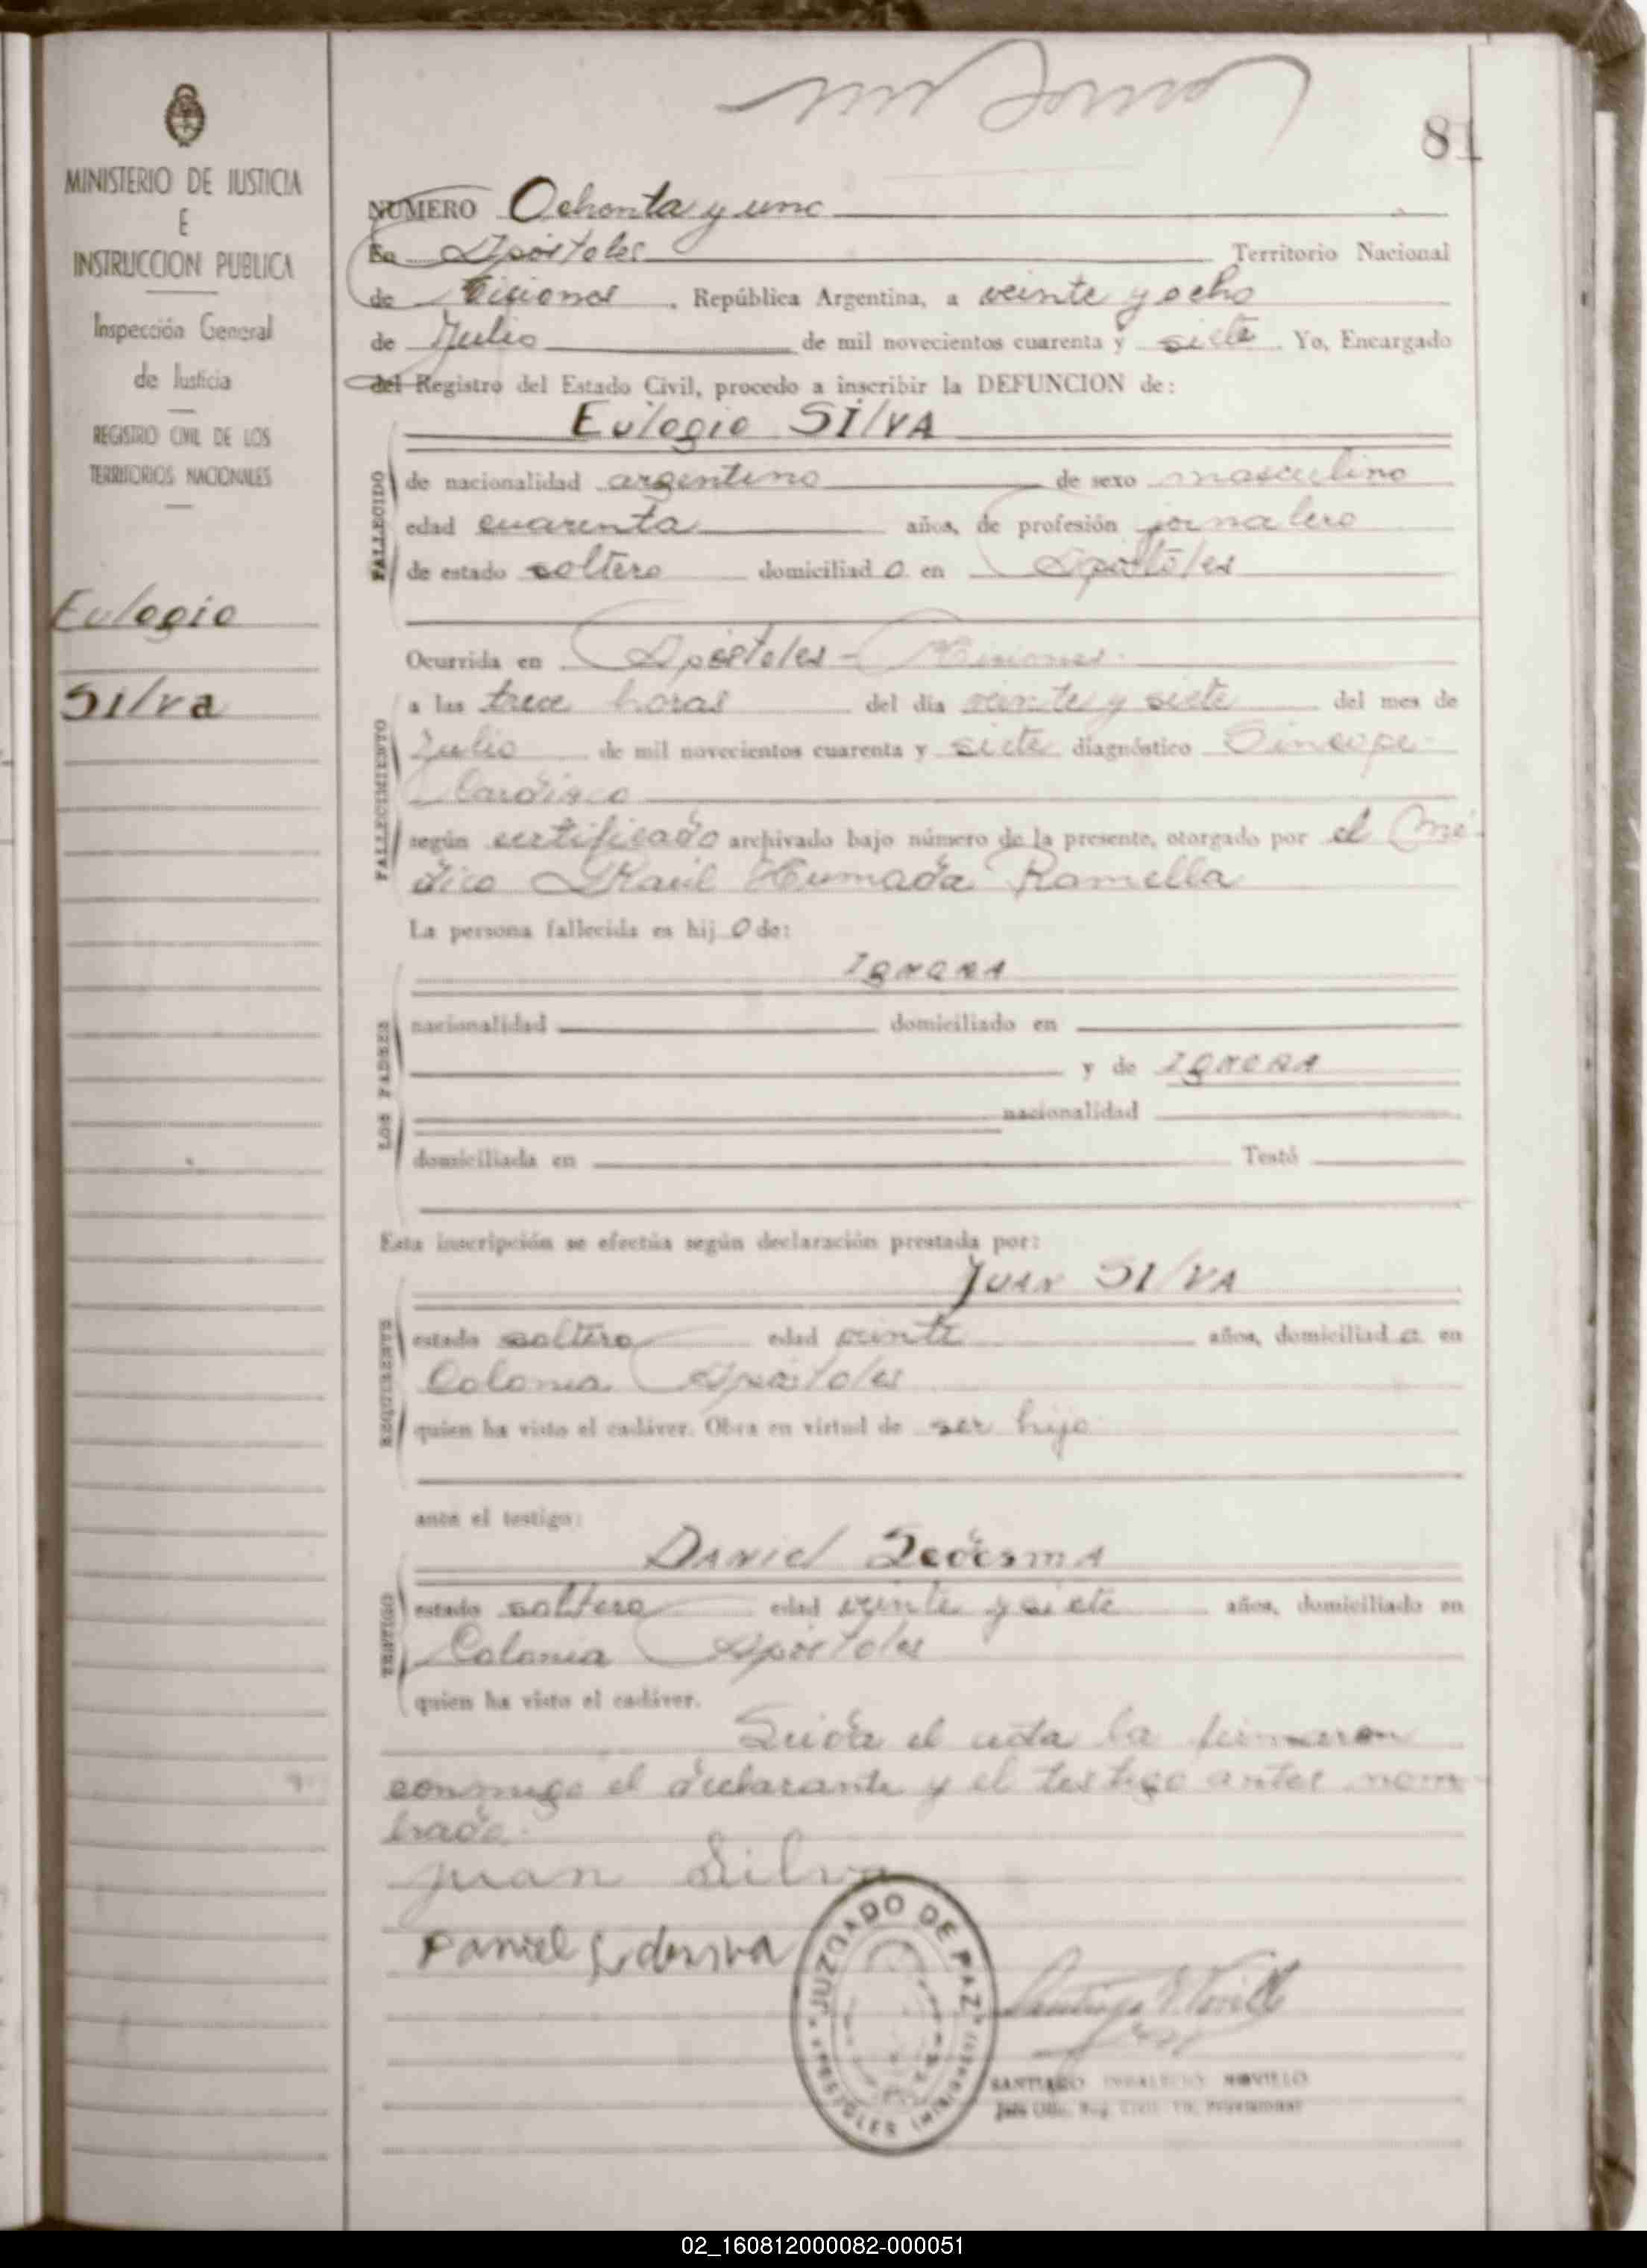 81
MINISTERIO DE JUSTICIA
E
INSTRUCCION PUBLICA
Inspección General
de Justicia
REGISTRO CIVIL DE LOS
TERRITORIOS NACIONALES
Eulogio
Silva
NUMERO Ochenta y uno
En Apóstoles Territorio Nacional
de Misiones, República Argentina, a veinte y ocho
de Julio de mil novecientos cuarenta y siete. Yo, Encargado
del Registro del Estado Civil, procedo a inscribir la DEFUNCION de:
Eulogio SILVA
FALLECIDO
de nacionalidad argentino de sexo masculino
edad cuarenta años, de profesión jornalero
de estado soltero domiciliad o en Apóstoles
Ocurrida en Apóstoles - Misiones.
FALLECIMIENTO
a las trece horas del día veinte y siete del mes de
Julio de mil novecientos cuarenta y siete diagnóstico Sincope
Cardiaco
según certificado archivado bajo número de la presente, otorgado por el Mé-
dico Raúl Humada Ramella
La persona fallecida es hij o de:
LOS PADRES
IGNORA
nacionalidad domiciliado en
y de IGNORA
nacionalidad
domiciliada en Testó
Esta inscripción se efectúa según declaración prestada por:
REQUIRENTE
JUAN SILVA
estado soltero edad veinte años, domiciliad o en
Colonia Apóstoles
quien ha visto el cadáver. Obra en virtud de ser hijo
ante el testigo:
TESTIGO
DANIEL LEDESMA
estado soltero edad veinte y siete años, domiciliado en
Colonia Apóstoles
quien ha visto el cadáver.
Leida el acta la firmaron
conmigo el declarante y el testigo antes nom-
brado.
Juan Silva
Daniel Ledesma
JUZGADO DE PAZ
APOSTOLES (MISIONES)
SANTIAGO INDALECIO NOVILLO
02_160812000082-000051